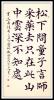 松下問童子言師
采藥去只在此山
中雲深不知處